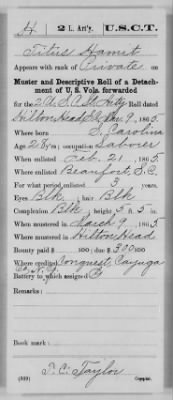 H | 21 Art'y. | U.S.C.T.
Titus Hamit
Appears with rank of Private on
Muster and Descriptive Roll of a Detachment of U. S. Vols. forwarded
for the 21 U.S.C. Art'y Roll dated
Hilton Head, S.C. Mar. 9, 1865.
Where born S. Carolina
Age 28 y'rs; occupation Laborer
When enlisted Feb. 21, 1865.
Where enlisted Beaufort, S.C.
For what period enlisted 3 years.
Eyes Blk; hair Blk
Complexion Blk; height 5 ft. 5 in.
When mustered in March 9, 1865.
Where mustered in Hilton Head
Bounty paid $ 100; due $ 300 100
Where credited Conquest, Cayuga
Co., N.Y.
Battery to which assigned
Remarks:
Book mark:
T. C. Taylor
(339) Copyist.